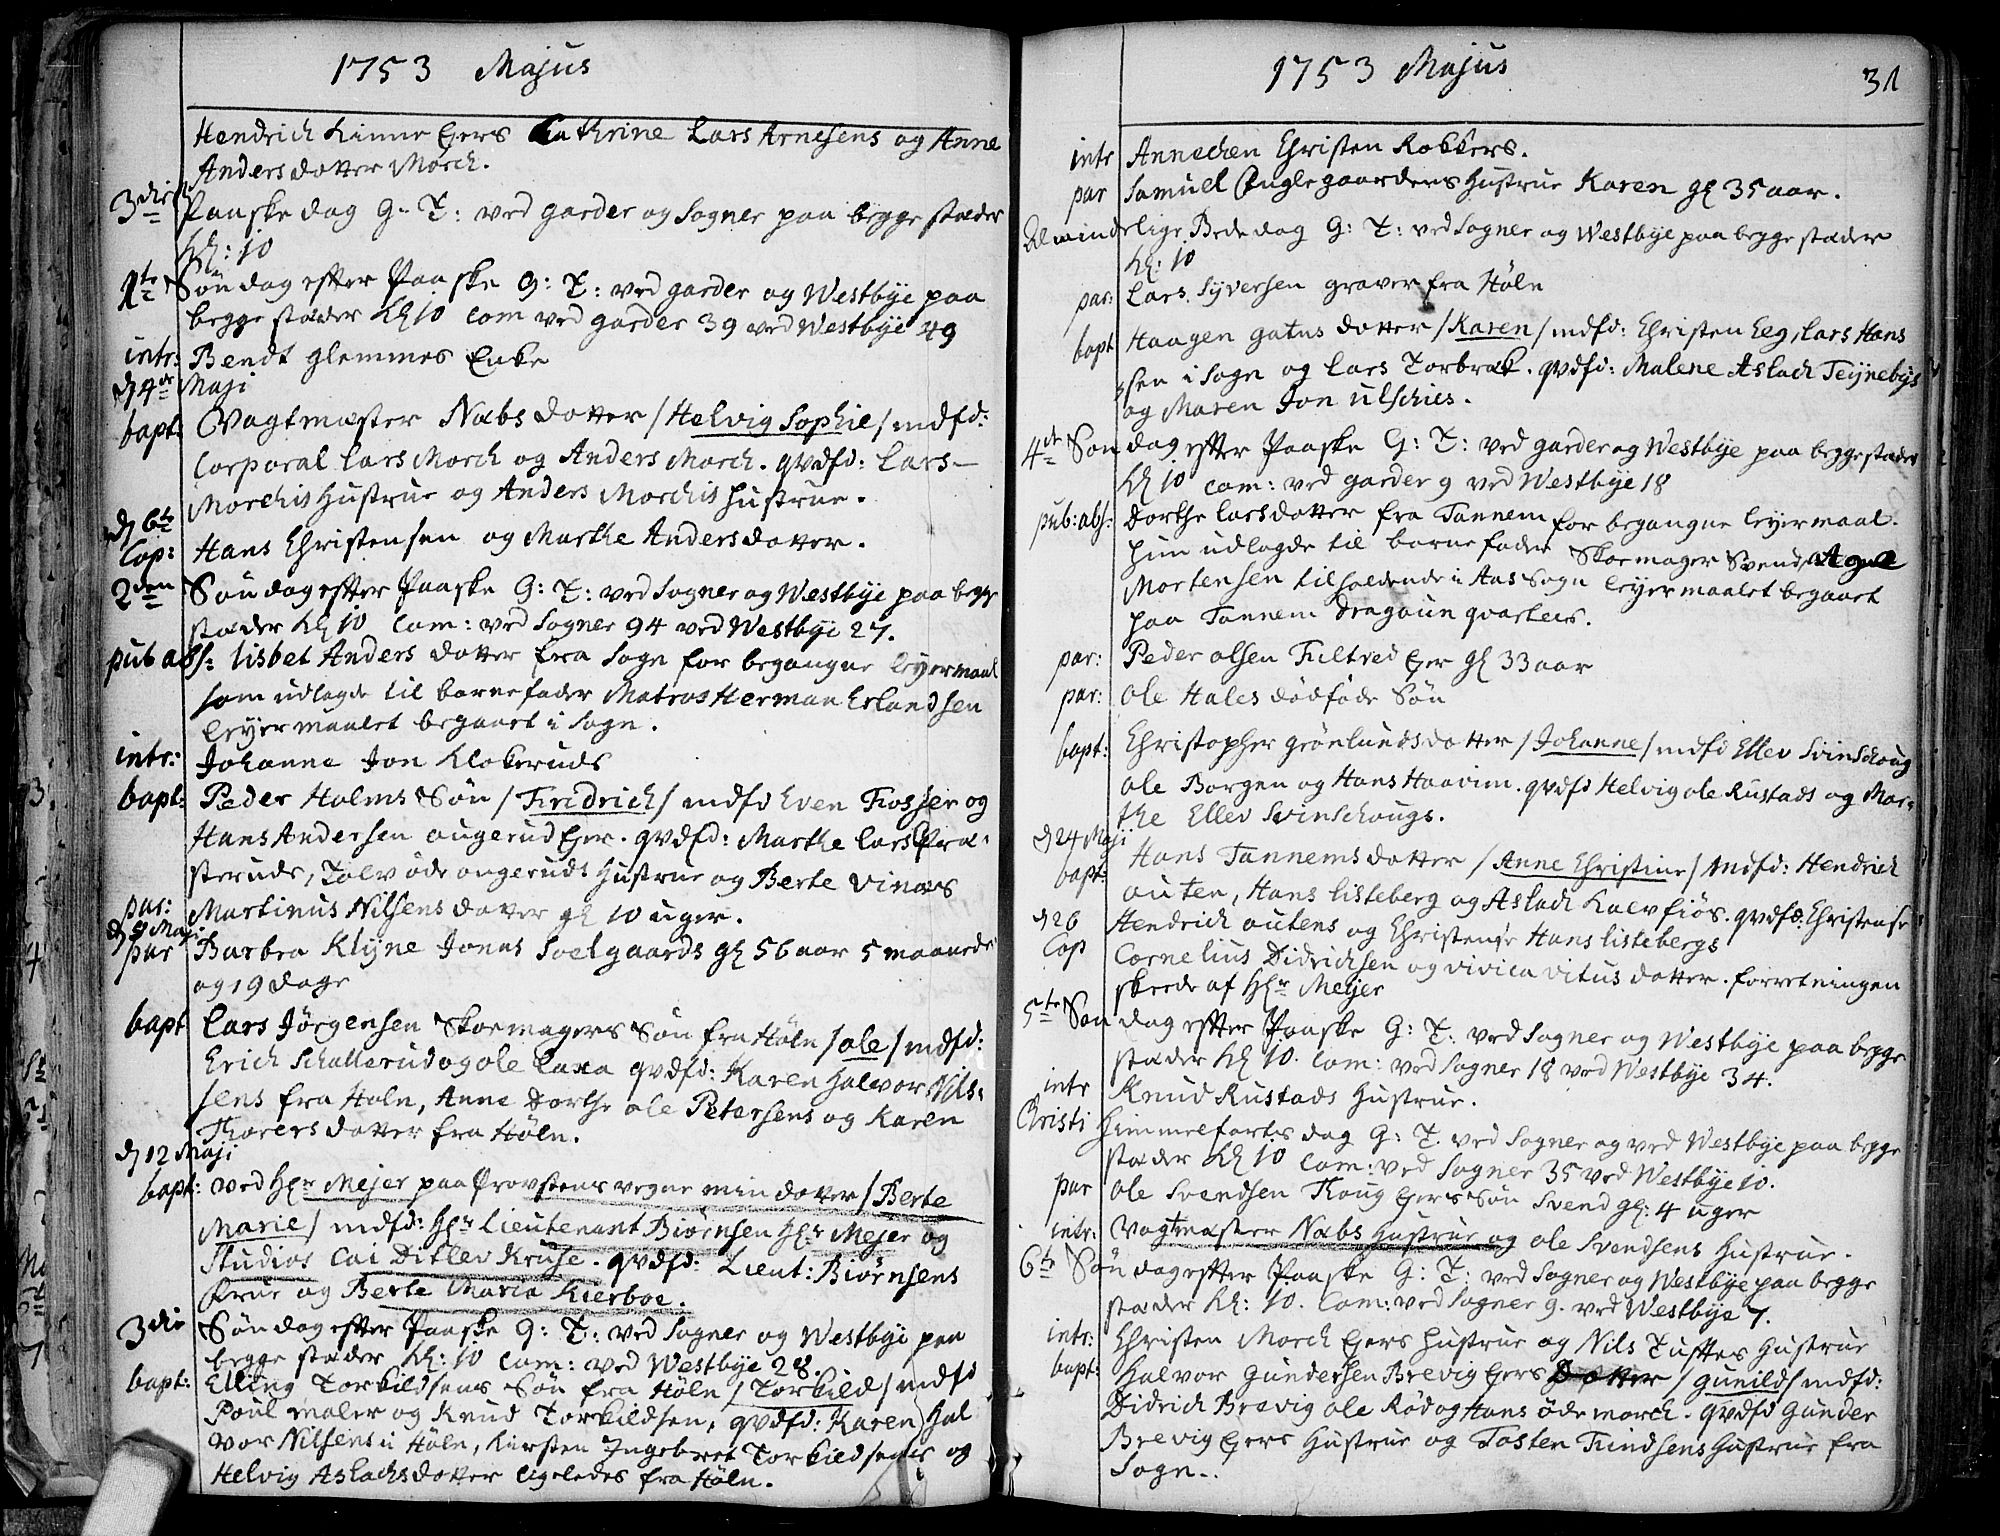 1753 Majus
Hendrich Kinne Eiers Cathrine Lars Arnesens og Anne
Anders dotter Morch.
3die Paaske dag G. T: ved garder og Sogner paa begge stæder
Kl: 10
1te Søndag efter Paaske G: T: ved garder og Westbye paa
begge stæder Kl 10 Com ved garder 39 ved Westbye 49
intr: Bendt glemmes Enke
d 4de Maji
bapt: Vagtmæster Næbs dotter / Helvig Sophie / mdfd:
Corporal Lars Morch og Anders Morch. qvdfd: Lars
Morchis Hustrue og Anders Morchis Hustrue.
d 6te
Cop: Hans Christensen og Marthe Andersdotter.
2den Søndag efter Paaske G: T: ved Sogner og Westbye paa begge
stæder Kl 10 Com: ved Sogner 94 ved Westbye 27.
pub abs: Lisbet Anders dotter fra Sogn for begangne Leyermaal
som udlagde til barnefader Matros Herman Erlandsen
Leyermaalet begaaet i Sogn.
intr: Johanne Jon Klokeruds
bapt: Peder Holms Søn / Fridrich / mdfd Even Fosser og
Hans Andersen augerud Eier. qvdfd: Marthe Lars Præ-
steruds, Tolv øde angeruds Hustrue og Berte Vinæs
par: Martinus Nilsens dotter gl 10 uger.
d 9 Maji
par Barbra Klyne Jonas Soelgaards gl 56 aar 5 maaneder
og 19 dage
bapt Lars Jørgensen Skoemagers Søn fra Høln / ole / mdfd:
Erich Schallerud og ole Laxa qvdfd: Karen Halvor Nils-
sens fra Holn, Anne Dorthe ole Petersens og Karen
Thorersdotter fra Høln.
d 12 Maji
bapt: ved Hr Mejer paa Provstens vegne min dotter / Berte
Marie / mdfd: Hr Lieutenant Biørnsen Hr Mejer og
Studios Cai Ditlev Kruse. qvdfd: Lieut: Biørnsens
frue og Berte Maria Kierboe.
3die Søndag efter Paaske G: T: ved Sogner og Westbye paa
begge stæder Kl: 10 Com: ved Westbye 28.
bapt: Elling Torkildsens Søn fra Høln / Torkild / mdfd
Poul maler og Knud Torkildsen, qvdfd: Karen Hal
vor Nilsens i Høln, Kirsten Ingebret Torkildsens og
Helvig Aslachsdotter ligeledes fra Høln.
1753 Majus 31
intr Annechen Christen Robbers.
par Samuel Englegaarders Hustrue Karen gl 35 aar.
Almindelige Bededag G: T: ved Sogner og Westbye paa begge stæder
Kl: 10
par: Lars Syversen graver fra Høln
bapt Haagen gatus dotter / Karen / mdfd: Christen Eeg, Lars Hans
sen i Sogn og Lars Torbræk. qvdfd: Malene Aslach Teynebys
og Maren Jon Ulschies.
4de Søndag efter Paaske G: T: ved garder og Westbye paa begge stæder
Kl 10 Com: ved garder 9 ved Westbye 18
pub: abs: Dorthe Larsdotter fra Tannem for begangne Leyermaal.
hun udlagde til barnefader Skoemager Svend Aage
Mortensen tilholdende i Aas Sogn Leyermaalet begaaet
paa Tannem Dragoun qvarteer.
par: Peder olsen Filtved Eier gl 33 aar
par: ole Hales dødføde Søn
bapt: Christopher grønlunds dotter / Johanne / mdfd Ellev Svinschoug
ole Borgen og Hans Haavim. qvdfd Helvig ole Rustads og Mar-
the Ellev Svinschougs.
d 24 Maji
bapt: Hans Tannems dotter / Anne Christine / mdfd: Hendrich
outen, Hans Listeberg og Aslach Kalvfiøs. qvdfd: Christense
Hendrich outens og Christense Hans Listebergs
d 26
Cop Cornelius Didrichsen og Vivica Vitus dotter. forretningen
skeede af Hr Mejer
5te Søndag efter Paaske G: T: ved Sogner og Westbye paa begge
stæder Kl 10. Com: ved Sogner 18 ved Westbye 34.
intr Knud Rustads Hustrue.
Christi Himmelfartes dag G: T. ved Sogner og ved Westbye paa begge
stæder Kl 10 Com: ved Sogner 35 ved Westbye 10.
par ole Svendsen Houg Eiers Søn Svend gl: 4 uger
intr: Vagtmæster Næbs Hustrue og ole Svendsens Hustrue.
6te Søndag efter Paaske G: T: ved Sogner og Westbye paa begge
stæder Kl: 10. Com: ved Sogner 9. ved Westbye 7.
intr: Christen Morch Eiers Hustrue og Nils Tuftes Hustrue
bapt: Halvor Gundersen Brevig Eiers Dotter / Gunild / mdfd:
Didrich Brevig ole Rød og Hans ødemorch. qvdfd Gunder
Brevig Eiers Hustrue og Tosten Findsens Hustrue fra
Sogn.